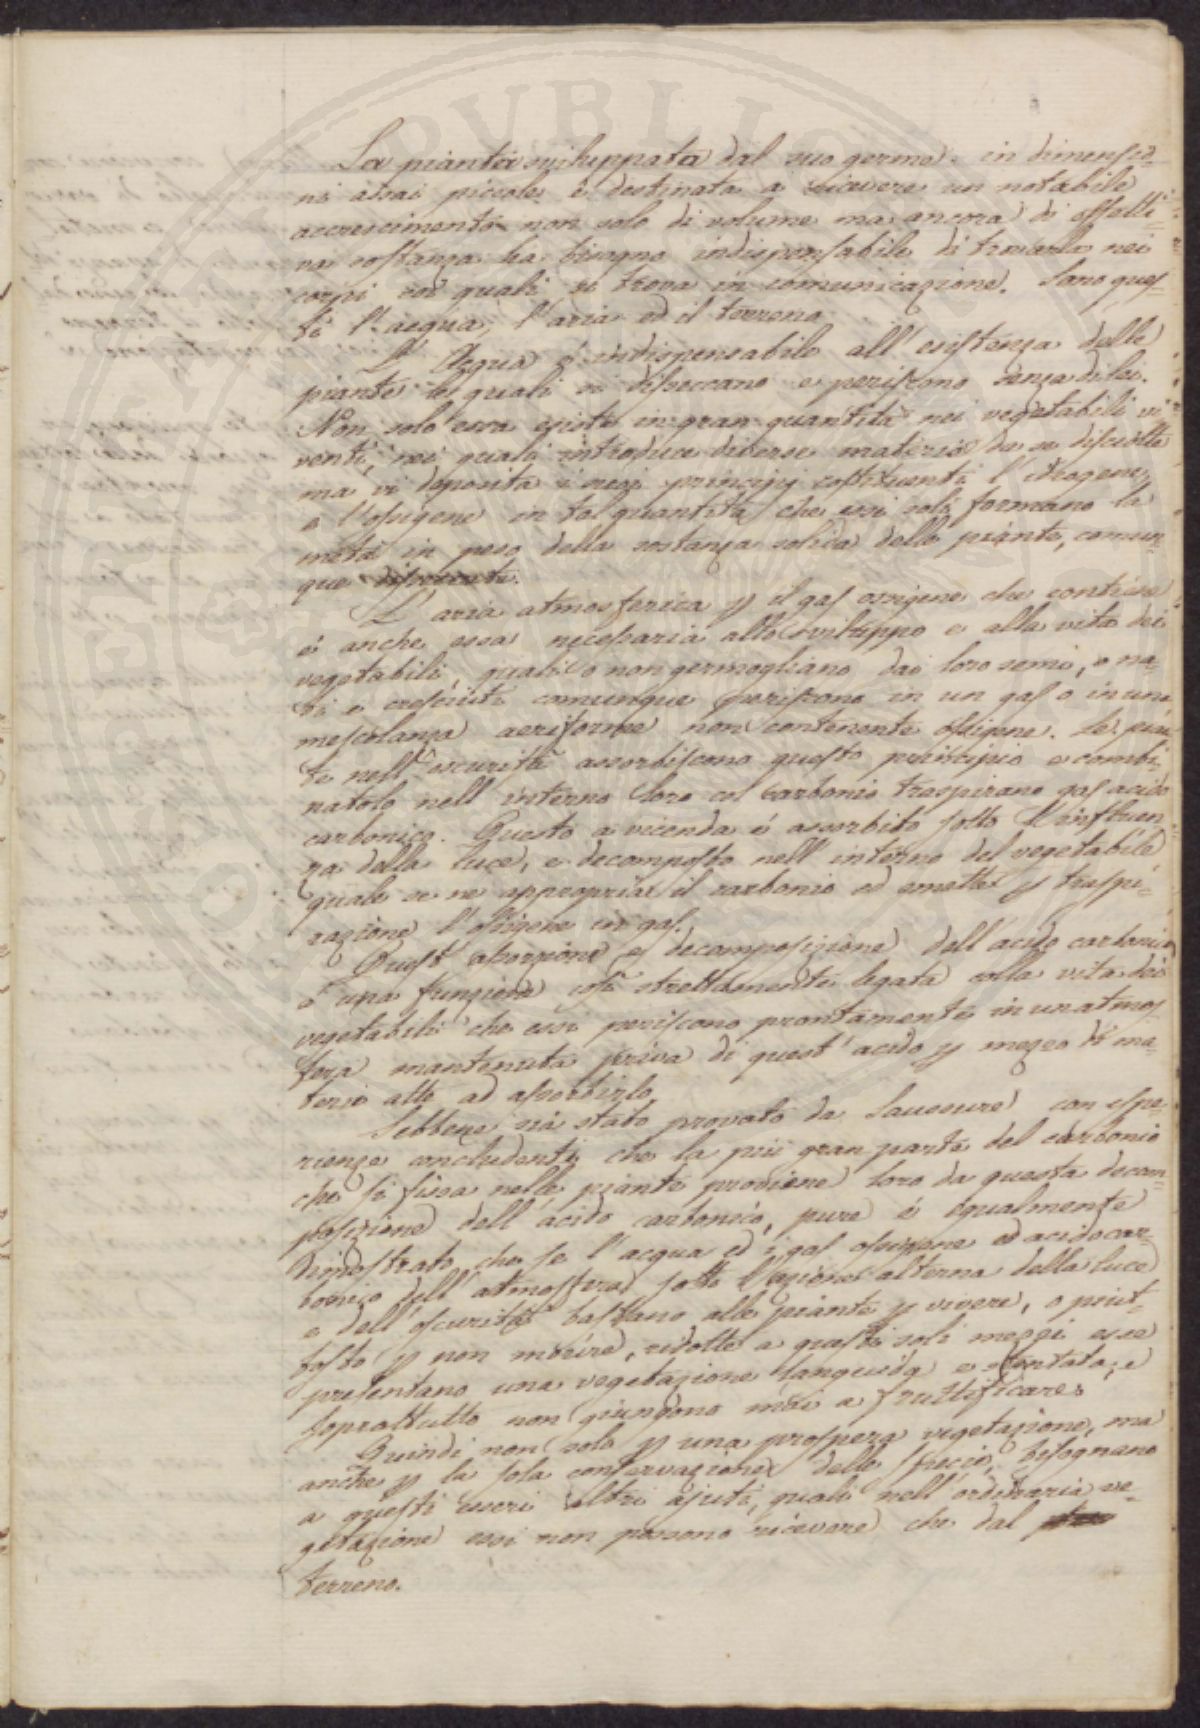 La pianta sviluppata dal suo germe, in dimensio-
ni assai piccole è destinata a ricevere un notabile
accrescimento non solo di volume ma ancora di effetti-
va sostanza ha bisogno indispensabile di trovarla nei
corpi coi quali si trova in comunicazione. Sono ques-
ti l'acqua, l'aria ed il terreno.
L'Acqua è indispensabile all'esistenza delle
piante le quali si disseccano e periscono senza di lei.
Non solo essa esiste in gran quantità nei vegetabili vi
venti, nei quali introduce diverse materie da se disciolte
ma vi deposita i suoi principj costituenti l'idrogene,
e l'ossigene in tal quantità che essi soli formano la
metà in peso della sostanza solida delle piante, comun-
que
L'aria atmosferica p il gas ossigene che contiene
è anche essa necessaria allo sviluppo e alla vita dei
vegetabili, quali o non germogliano dai loro semi, o na-
ti e cresciuti comunque periscono in un gas o in una
mescolanza aeriforme non contenente ossigene. Le pian
te nell'oscurità assorbiscono questo principio e combi-
natolo nell'interno loro col carbonio traspirano gas acido
carbonico. Questo a vicenda è assorbito sotto l'influen
za della luce, e decomposto nell'interno del vegetabile
quale se ne appropria il carbonio ed emette p traspi-
razione l'ossigene in gas.
Quest'absorzione e decomposizione dell'acido carbonico
è una funzione così strettamente legata colla vita dei
vegetabili che essi periscono prontamente in un atmos
fera mantenuta priva di quest'acido p mezzo di ma-
terie atte ad assorbirlo.
Sebbene sia stato provato da Saussure con espe-
rienze concludenti che la più gran parte del carbonio
che si fissa nelle piante proviene loro da questa decom-
posizione dell'acido carbonico, pure è egualmente
dimostrato che se l'acqua ed i gas ossigene ed acido car-
bonico dell'atmosfera sotto l'azione alterna della luce
e dell'oscurità bastano alle piante p vivere, o piut-
tosto p non morire, ridotte a questi soli mezzi esse
presentano una vegetazione languida e stentata, e
soprattutto non giungono mai a fruttificare.
Quindi non solo p una prospera vegetazione, ma
anche p la sola conservazione delle specie, bisognano
a questi esseri altri ajuti, quali nell'ordinaria ve-
getazione essi non possono ricevere che dal
terreno.